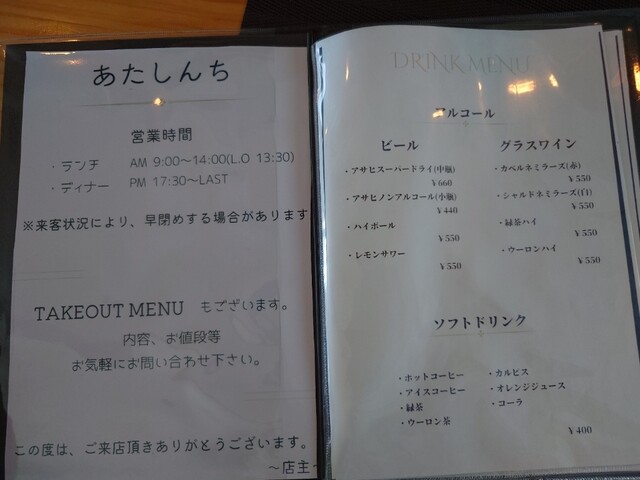 あたしんち
営業時間
・ランチ AM 9:00〜14:00(L.O 13:30)
・ディナー PM 17:30〜LAST
※来客状況により、早閉めする場合があります
TAKEOUT MENU もございます。
内容、お値段等
お気軽にお問い合わせ下さい。
この度は、ご来店頂きありがとうございます。
〜店主〜
DRINK MENU
アルコール
ビール
・アサヒスーパードライ(中瓶)
¥660
・アサヒノンアルコール(小瓶)
¥440
・ハイボール
¥550
・レモンサワー
¥550
グラスワイン
・カベルネミラーズ(赤)
¥550
・シャルドネミラーズ(白)
¥550
・緑茶ハイ
¥550
・ウーロンハイ
¥550
ソフトドリンク
・ホットコーヒー
・アイスコーヒー
・緑茶
・ウーロン茶
・カルピス
・オレンジジュース
・コーラ
¥400